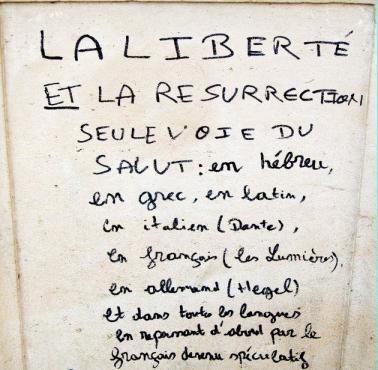 LA LIBERTÉ
ET LA RESURRECTION
SEULE VOIE DU
SALUT : en hébreu,
en grec, en latin,
En italien (Dante),
En français (les Lumières),
en allemand (Hegel)
Et dans toutes les langues
en repensant d'abord par le
français devenu spéculatif